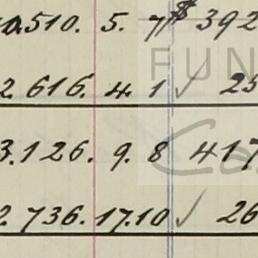 0.510. 5. 7 $ 392
2 616. 4. 1 ✓ 25
3.126. 9. 8 417
2.736.17.10 ✓ 26
FUN